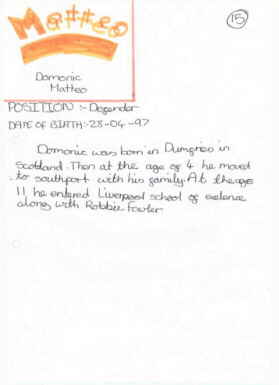 Matteo
15
Domonic
Matteo
POSITION :- Defender
DATE OF BIRTH:-28-04-97
Domonic was born in Dumfries in
Scotland. Then at the age of 4 he moved
to southport with his family. At the age
11 he entered Liverpool school of exelence
along with Robbie Fowler